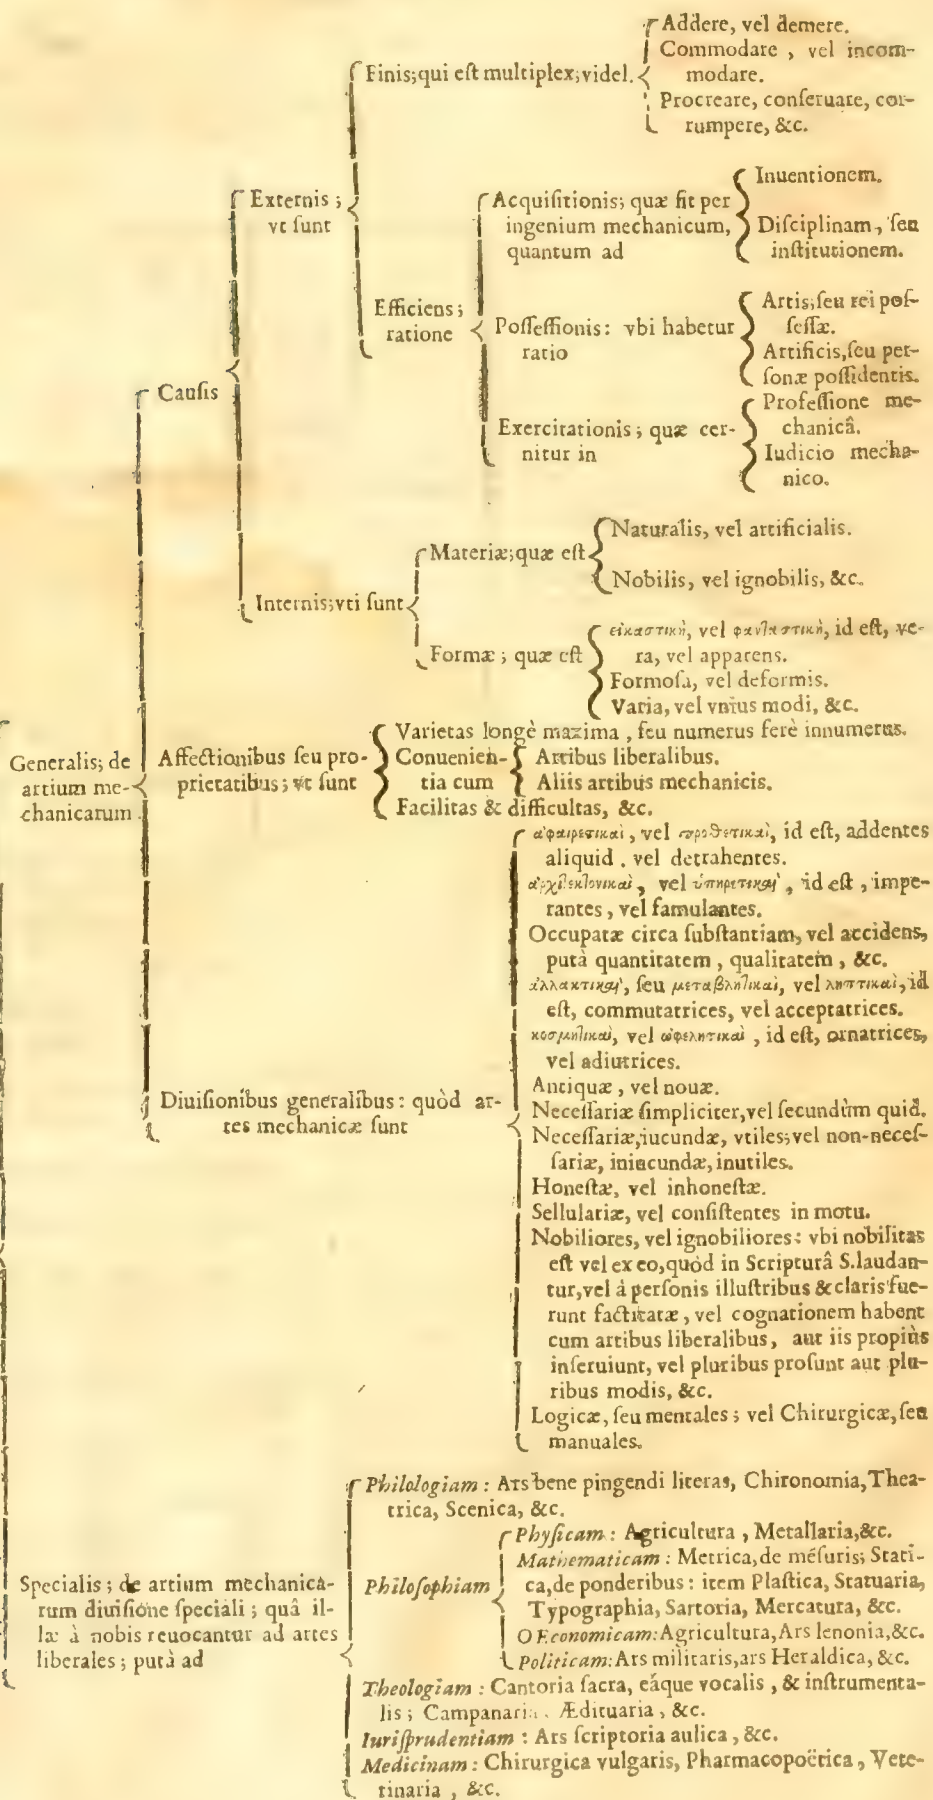 Addere, vel demere.
Commodare , vel incom-
modare.
Procreare, conſeruare, cor-
rumpere, &c.
Finis; qui eſt multiplex; videl.
Externis ;
vt ſunt
Acquiſitionis; quæ fit per
ingenium mechanicum,
quantum ad
Inuentionem.
Diſciplinam, ſeu
inſtitutionem.
Efficiens ;
ratione
Poſſeſſionis: vbi habetur
ratio
Artis, ſeu rei poſ-
ſeſſæ.
Artificis, ſeu per-
ſonæ poſſidentis.
Exercitationis ; quæ cer-
nitur in
Profeſſione me-
chanicâ.
Iudicio mecha-
nico.
Cauſis
Internis; vti ſunt
Materiæ; quæ eſt
Naturalis, vel artificialis.
Nobilis, vel ignobilis, &c.
Formæ ; quæ eſt
εἰκαστικὴ, vel φανταστικὴ, id eſt, ve-
ra, vel apparens.
Formoſa, vel deformis.
Varia, vel vnius modi, &c.
Generalis; de
artium me-
chanicarum
Affectionibus ſeu pro-
prietatibus ; vt ſunt
Varietas longè maxima , ſeu numerus ferè innumerus.
Conuenien-
tia cum
Artibus liberalibus.
Aliis artibus mechanicis.
Facilitas & difficultas, &c.
Diuiſionibus generalibus : quòd ar-
tes mechanicæ ſunt
ἀφαιρετικαὶ , vel προσθετικαὶ, id eſt, addentes
aliquid , vel detrahentes.
ἀρχιτεκτονικαὶ , vel ὑπηρετικαὶ , id eſt , impe-
rantes , vel famulantes.
Occupatæ circa ſubſtantiam, vel accidens,
putà quantitatem , qualitatem , &c.
ἀλλακτικαὶ, ſeu μεταβλητικαὶ, vel ληπτικαὶ, id
eſt, commutatrices, vel acceptatrices.
κοσμητικαὶ, vel ὠφελητικαὶ , id eſt, ornatrices,
vel adiutrices.
Antiquæ , vel nouæ.
Neceſſariæ ſimpliciter, vel ſecundùm quid.
Neceſſariæ, iucundæ, vtiles; vel non-neceſ-
ſariæ, iniucundæ, inutiles.
Honeſtæ, vel inhoneſtæ.
Sellulariæ, vel conſiſtentes in motu.
Nobiliores, vel ignobiliores : vbi nobilitas
eſt vel ex eo, quòd in Scripturâ S. laudan-
tur, vel à perſonis illuſtribus & claris fue-
runt factitatæ , vel cognationem habent
cum artibus liberalibus , aut iis propiùs
inſeruiunt, vel pluribus proſunt aut plu-
ribus modis, &c.
Logicæ, ſeu mentales ; vel Chirurgicæ, ſeu
manuales.
Specialis ; de artium mechanica-
rum diuiſione ſpeciali ; quâ il-
læ à nobis reuocantur ad artes
liberales ; putà ad
Philologiam : Ars bene pingendi literas, Chironomia, Thea-
trica, Scenica, &c.
Philoſophiam
Phyſicam : Agricultura , Metallaria, &c.
Mathematicam : Metrica, de mēſuris; Stati-
ca, de ponderibus : item Plaſtica, Statuaria,
Typographia, Sartoria, Mercatura, &c.
OEconomicam: Agricultura, Ars lenonia, &c.
Politicam: Ars militaris, ars Heraldica, &c.
Theologiam : Cantoria ſacra, eáque vocalis , & inſtrumenta-
lis ; Campanaria, Ædituaria , &c.
Iuriſprudentiam : Ars ſcriptoria aulica , &c.
Medicinam : Chirurgica vulgaris, Pharmacopoëtica , Vete-
rinaria , &c.